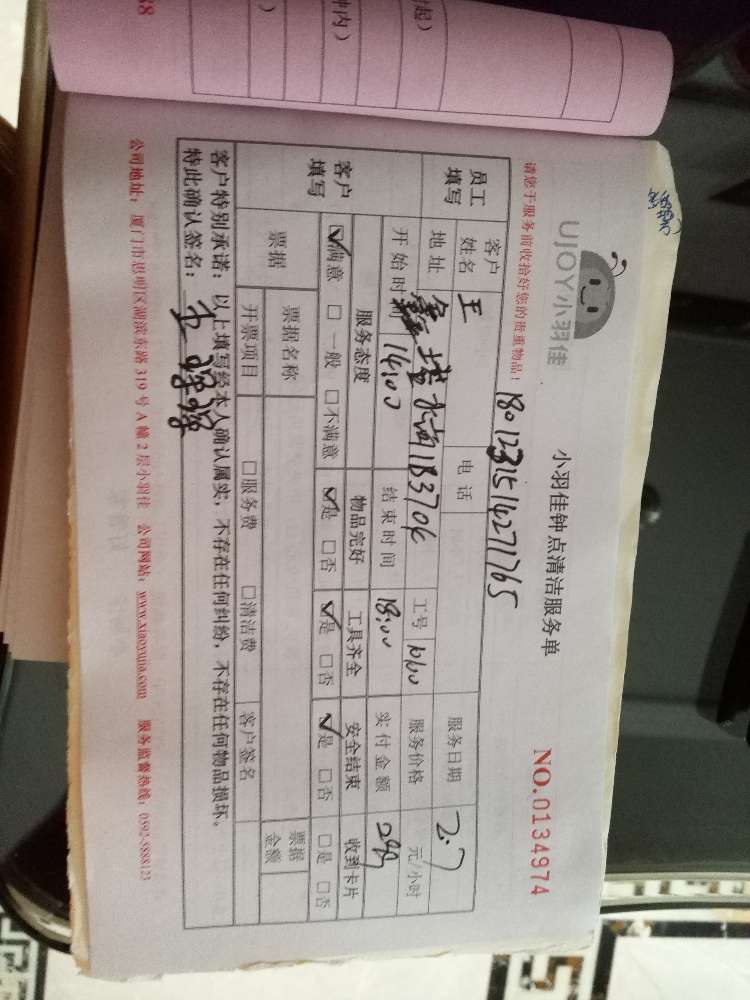 UJOY小羽佳
小羽佳钟点清洁服务单
请您于服务前收拾好您的贵重物品！
NO.0134974
员工填写
客户姓名 王 电话 服务日期 2.7
地址 工号 服务价格 元/小时
开始时间 14:00 结束时间 18:00 实付金额
客户填写
服务态度 物品完好 工具齐全 安全结束 收到卡片
☑满意 □一般 □不满意 ☑是 □否 ☑是 □否 ☑是 □否 □是 □否
票据 票据名称 票据金额
开票项目 □服务费 □清洁费 客户签名
客户特别承诺：以上填写经本人确认属实，不存在任何纠纷，不存在任何物品损坏。
特此确认签名：
公司地址：厦门市思明区湖滨东路319号A幢2层小羽佳 公司网站：www.xiaoyujia.com 服务监督热线：0592-5888123